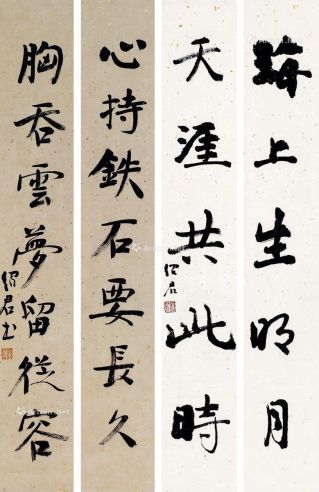 海上生明月
天涯共此時
君
心持鉄石要長久
胸吞雲夢留從容
君书